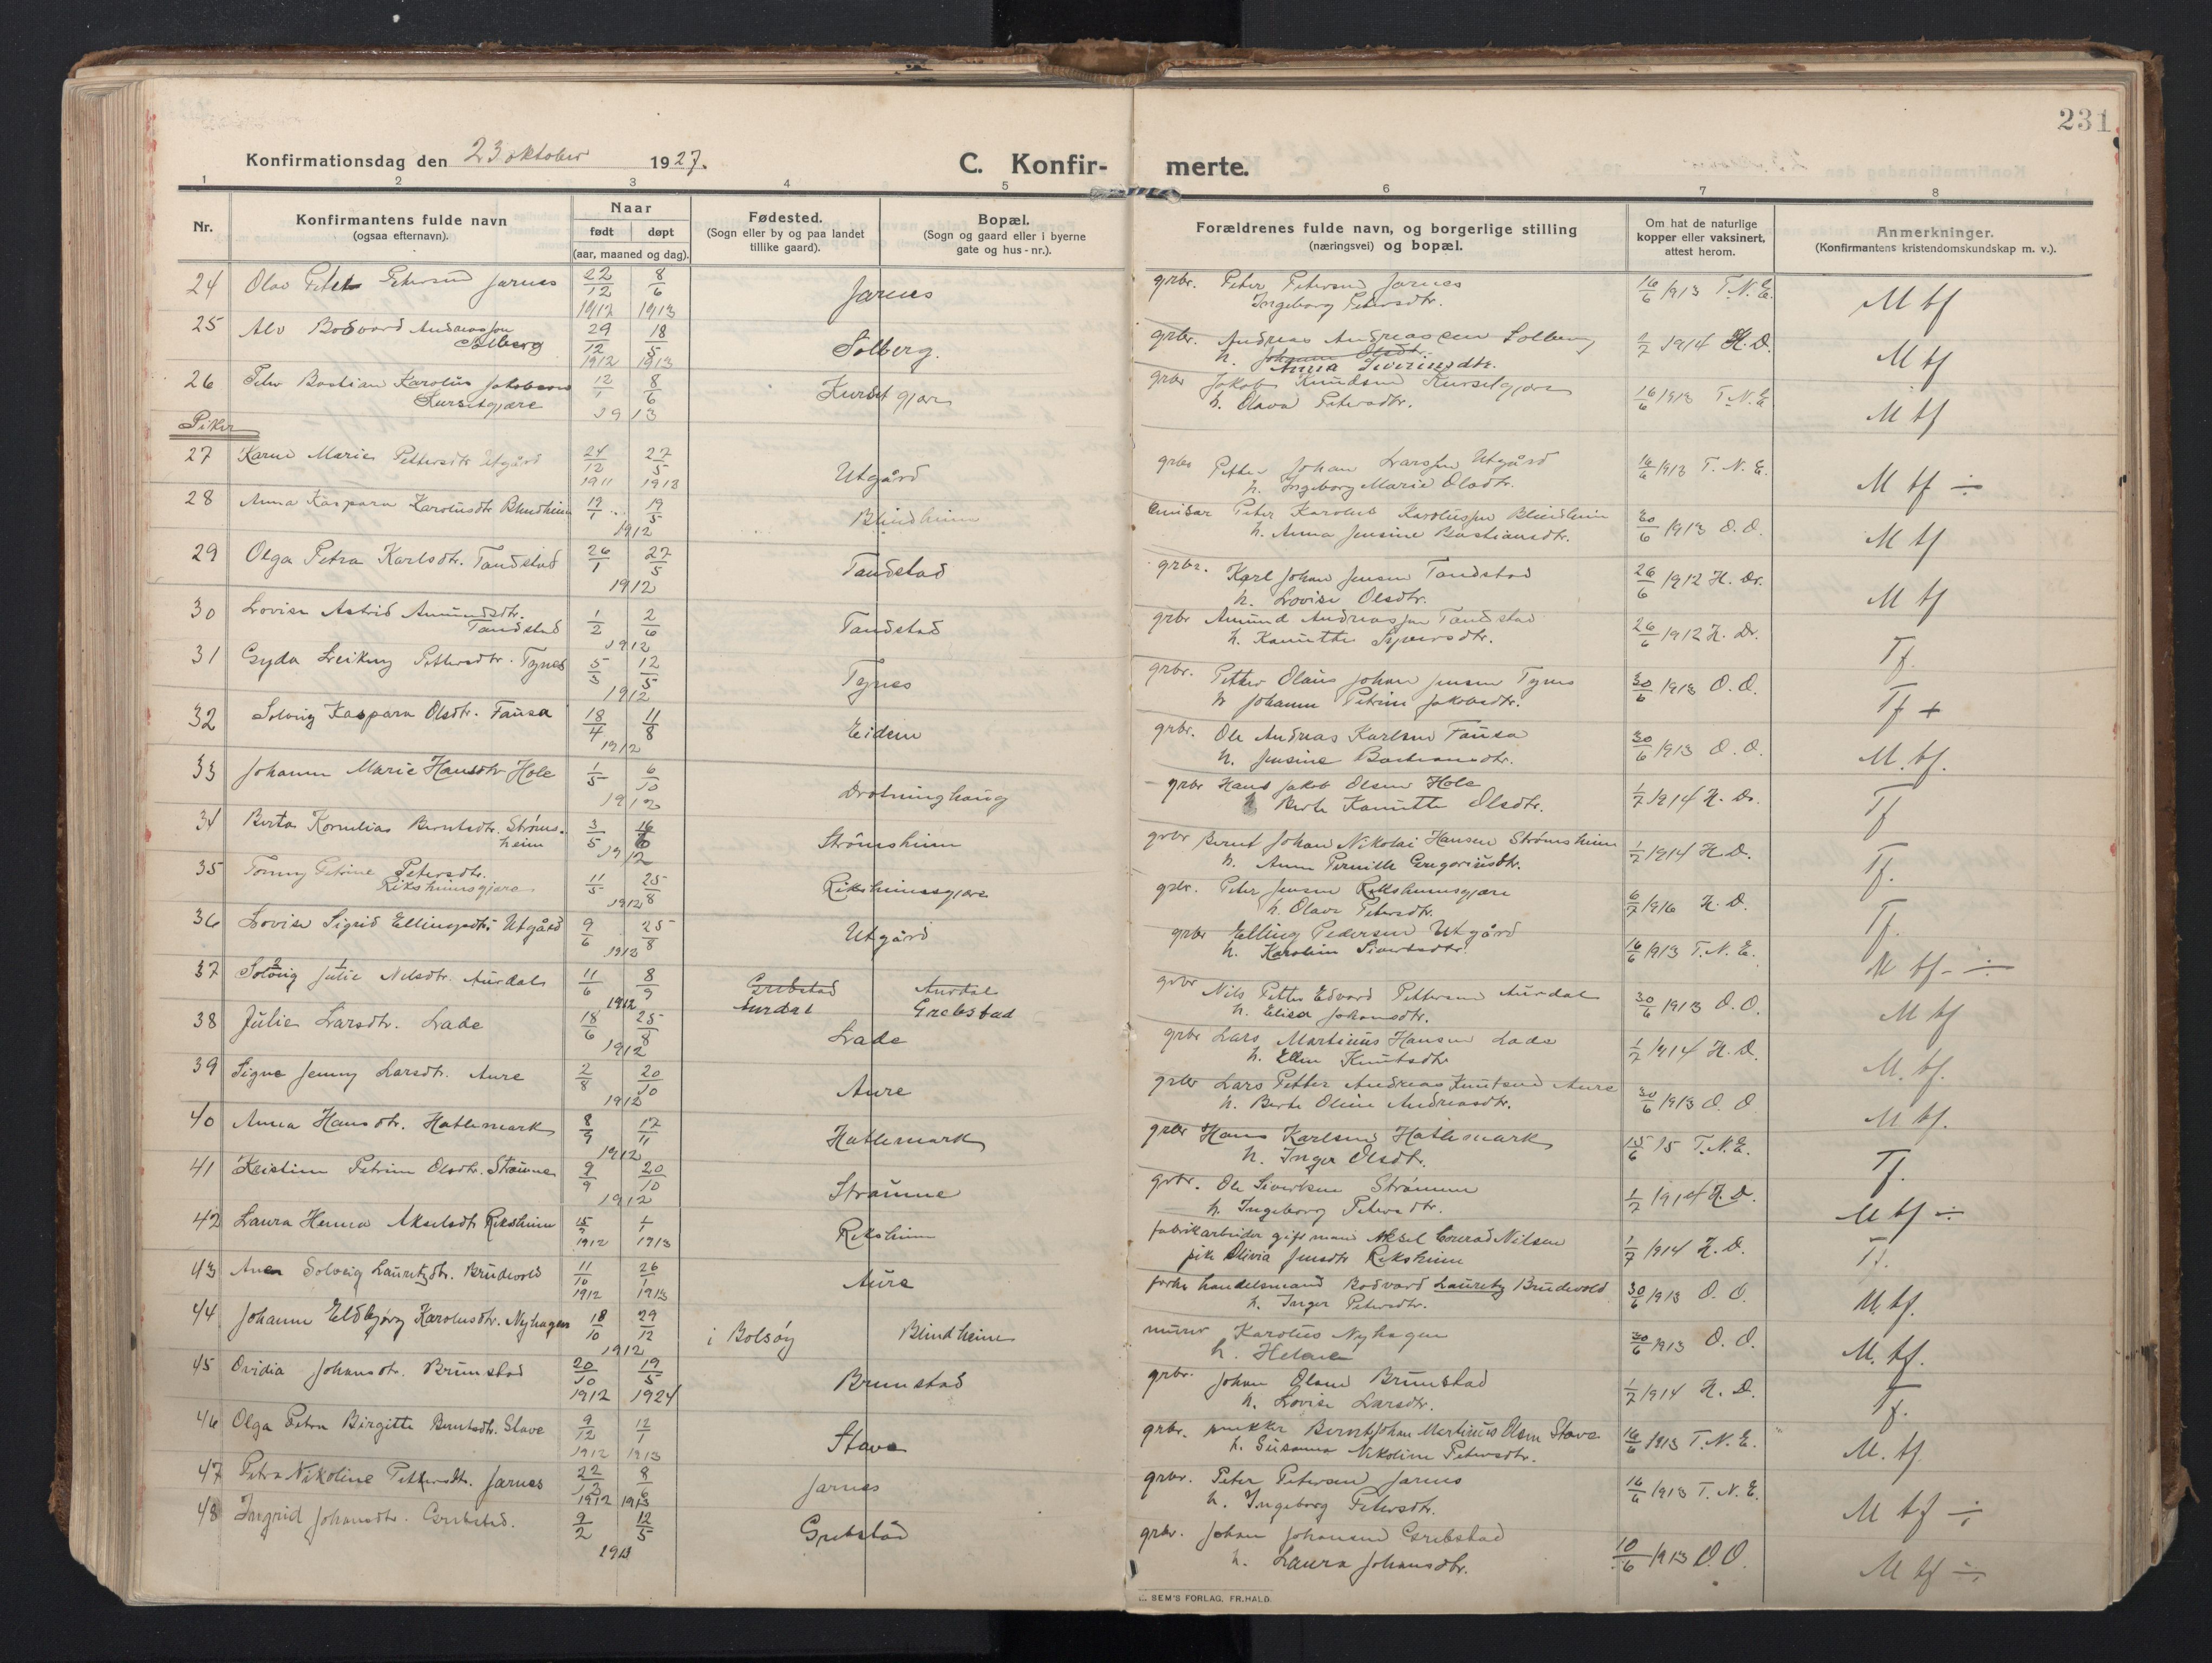 231
Konfirmationsdag den 23 oktober 1927.
C. Konfir- merte.
1 2 3 4 5 6 7 8
Nr.
Konfirmantens fulde navn
(ogsaa efternavn).
Naar
født døpt
(aar, maaned og dag).
Fødested.
(Sogn eller by og paa landet
tillike gaard).
Bopæl.
(Sogn og gaard eller i byerne
gate og hus-nr.).
Forældrenes fulde navn, og borgerlige stilling
(næringsvei) og bopæl.
Om hat de naturlige
kopper eller vaksinert,
attest herom.
Anmerkninger.
(Konfirmantens kristendomskundskap m. v.).
24 Olav Peter Petersen Jarnes 22/12 1912 8/6 1913 Jarnes grbr. Peter Petersen Jarnes 16/6 1913 T.N.E. M tf
Ingeborg Petersdtr.
25 Alv Bodvard Andreassen 29/12 1912 18/5 1913 Solberg. grbr. Andreas Andreassen Solberg 2/7 1914 H.D. M tf
Solberg h. Johanne Olsdtr.
Anna Severinsdtr.
26 Peter Bastian Karolus Jakobsen 12/1 8/6 1913 Kursetgjære grbr Jakob Knudsen Kursetgjære 16/6 1913 T.N.E. M tf
Kursetgjære h. Olava Petersdtr.
Piker
27 Karen Marie Pettersdtr Utgård 24/12 1911 27/5 1913 Utgård grbr Petter Johan Larsen Utgård 16/6 1913 T.N.E. M tf ÷
h. Ingeborg Marie Olsdtr.
28 Anna Kaspara Karolusdtr Blindheim 12/1 19/5 1912 Blindheim Emisær Peter Karolus Karolussen Blindheim 30/6 1913 O.O. M tf
h. Anna Jensine Bastiansdtr.
29 Olga Petra Karlsdtr. Tandstad 26/1 27/5 1912 Tandstad grbr. Karl Johan Jensen Tandstad 26/6 1912 H. Dr. M tf
h. Lovise Olsdtr.
30 Lovise Astrid Amundsdtr. 1/2 2/6 1912 Tandstad grbr Amund Andreassen Tandstad 26/6 1912 H. Dr. Tf.
Tandstad h. Kanutte Syversdtr.
31 Gyda Pettersdtr. Tynes 5/3 12/5 1912 Tynes grbr. Petter Olaus Johan Jensen Tynes 30/6 1913 O.O. Tf +
h Johanne Petrine Jakobsdtr.
32 Solveig Kaspara Olsdtr. Fausa 18/4 11/8 1912 Eidem grbr. Ole Andreas Karlsen Fausa 30/6 1913 O.O. M. tf.
h. Jensine Bastiansdtr.
33 Johanne Marie Hansdtr Hole 1/5 6/10 1912 Drotninghaug grbr Hans Jakob Olsen Hole 1/7 1914 H. Dr. Tf
h Berte Kanutte Olsdtr.
34 Berta Kornelias Berntsdtr. Strøms- 3/5 16/6 1912 Strømsheim grbr Bernt Johan Nikolai Hansen Strømsheim 1/7 1914 H.D. Tf.
heim h. Anne Pernille Gregoriusdtr.
35 Tonny Petrine Petersdtr. 11/5 25/8 1912 Riksheimsgjære grbr. Peter Jensen Riksheimsgjære 6/7 1916 H.D. Tf.
Riksheimsgjære h. Olave Petersdtr.
36 Lovise Sigrid Ellingsdtr. Utgård 9/6 25/8 1912 Utgård grbr Elling Pedersen Utgård 16/6 1913 T.N.E. M tf- ÷
h. Karoline Sivertsdtr.
37 Solveig Julie Nilsdtr. Aurdal 11/6 8/9 1912 Grebstad Aurdal grbr Nils Petter Edvard Pettersen Aurdal 30/6 1913 O.O. M tf
Aurdal Grebstad h. Elisa Johansdtr.
38 Julie Larsdtr. Lade 18/6 25/8 1912 Lade grbr Lars Martinus Hansen Lade 1/7 1914 H.D. M. tf.
h. Ellen Knutsdtr
39 Signe Jenny Larsdtr. Aure 2/8 20/10 1912 Aure grbr Lars Petter Andreas Knutsen Aure 30/6 1913 O.O M tf.
h. Berte Oline Andreasdtr.
40 Anna Hansdtr. Hatlemark 8/9 17/11 1912 Hatlemark grbr Hans Karlsen Hatlemark 15/6 15 T.N.E. Tf.
h. Inger Olsdtr.
41 Kristine Petrine Olsdtr. Straume 9/9 20/10 1912 Straume grbr. Ole Sivertsen Straume 1/7 1914 H.D. M tf ÷
h. Ingeborg Petersdtr.
42 Laura Henna Akselsdtr Riksheim 15/9 1912 1/1 1913 Riksheim fabrikarbeider gift mann Aksel Conrad Nilsen 1/7 1914 H.D. Tf.
pike Olivia Jensdtr Riksheim
43 Anna Solveig Lauritzdtr. Brudevold 11/10 1912 26/1 1913 Aure forhv handelsmand Bodvard Lauritz Brudevold 30/6 1913 O.O. M. tf.
h. Inger Petersdtr.
44 Johanne Eldbjørg Karolusdtr. Nyhagen 18/10 29/12 1912 i Bolsøy Blindheim murer Karolus Nyhagen 30/6 1913 O.O. M. tf.
h. Helene
45 Ovidia Johansdtr. Brunstad 20/10 1912 19/5 1924 Brunstad grbr. Johan Olsen Brunstad 1/7 1914 H.D. Tf.
h. Lovise Larsdtr.
46 Olga Petra Birgitte Berntsdtr. Stave 9/12 1912 12/1 1913 Stave grbr. Bernt Johan Martinus Olsen Stave 16/6 1913 T.N.E. M. tf.
h. Susanna Nikoline Petersdtr.
47 Petra Nikoline Pettersdtr. Jarnes 22/12 1912 8/6 1913 Jarnes grbr. Peter Petersen Jarnes 16/6 1913 T.N.E. M tf ÷
h. Ingeborg Petersdtr.
48 Ingrid Johansdtr. Grebstad. 9/2 12/5 1913 Grebstad grbr. Johan Johansen Grebstad 10/6 1913 O.O. M tf ÷
h. Laura Johansdtr.
SEM'S FORLAG, FR. HALD.